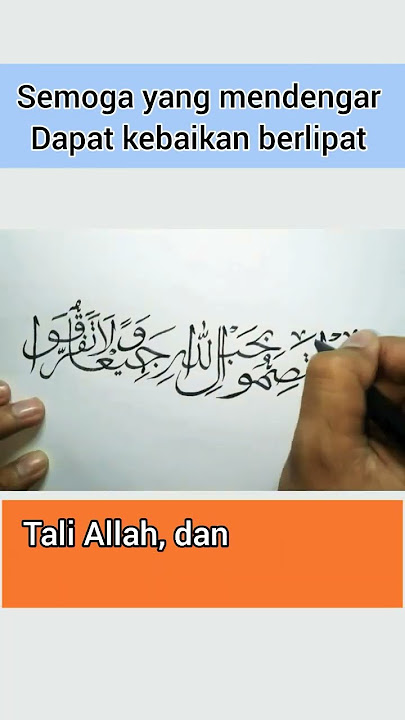 Semoga yang mendengar
Dapat kebaikan berlipat
بِحَبْلِ اللّٰهِ جَمِيْعًا وَّلَا تَفَرَّقُوْا
Tali Allah, dan